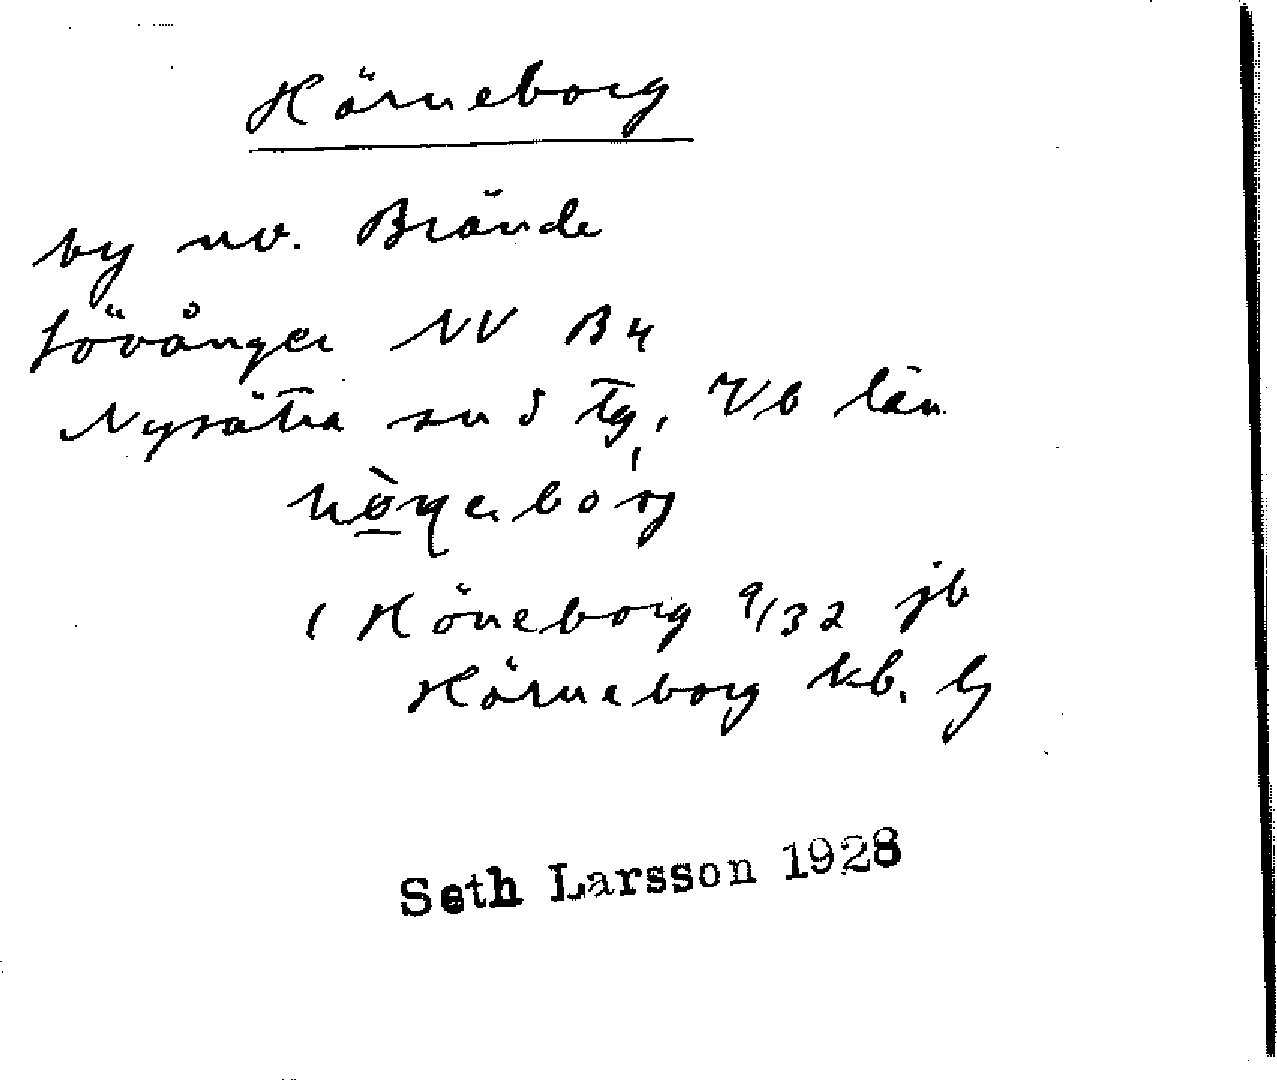 Hörneborg
by nv. Brände
Lövånger NV B4
Nysätra sn S Tg, Vb län
(Höneborg 9/32 jb
Hörneborg kb. Lg
Seth Larsson 1928